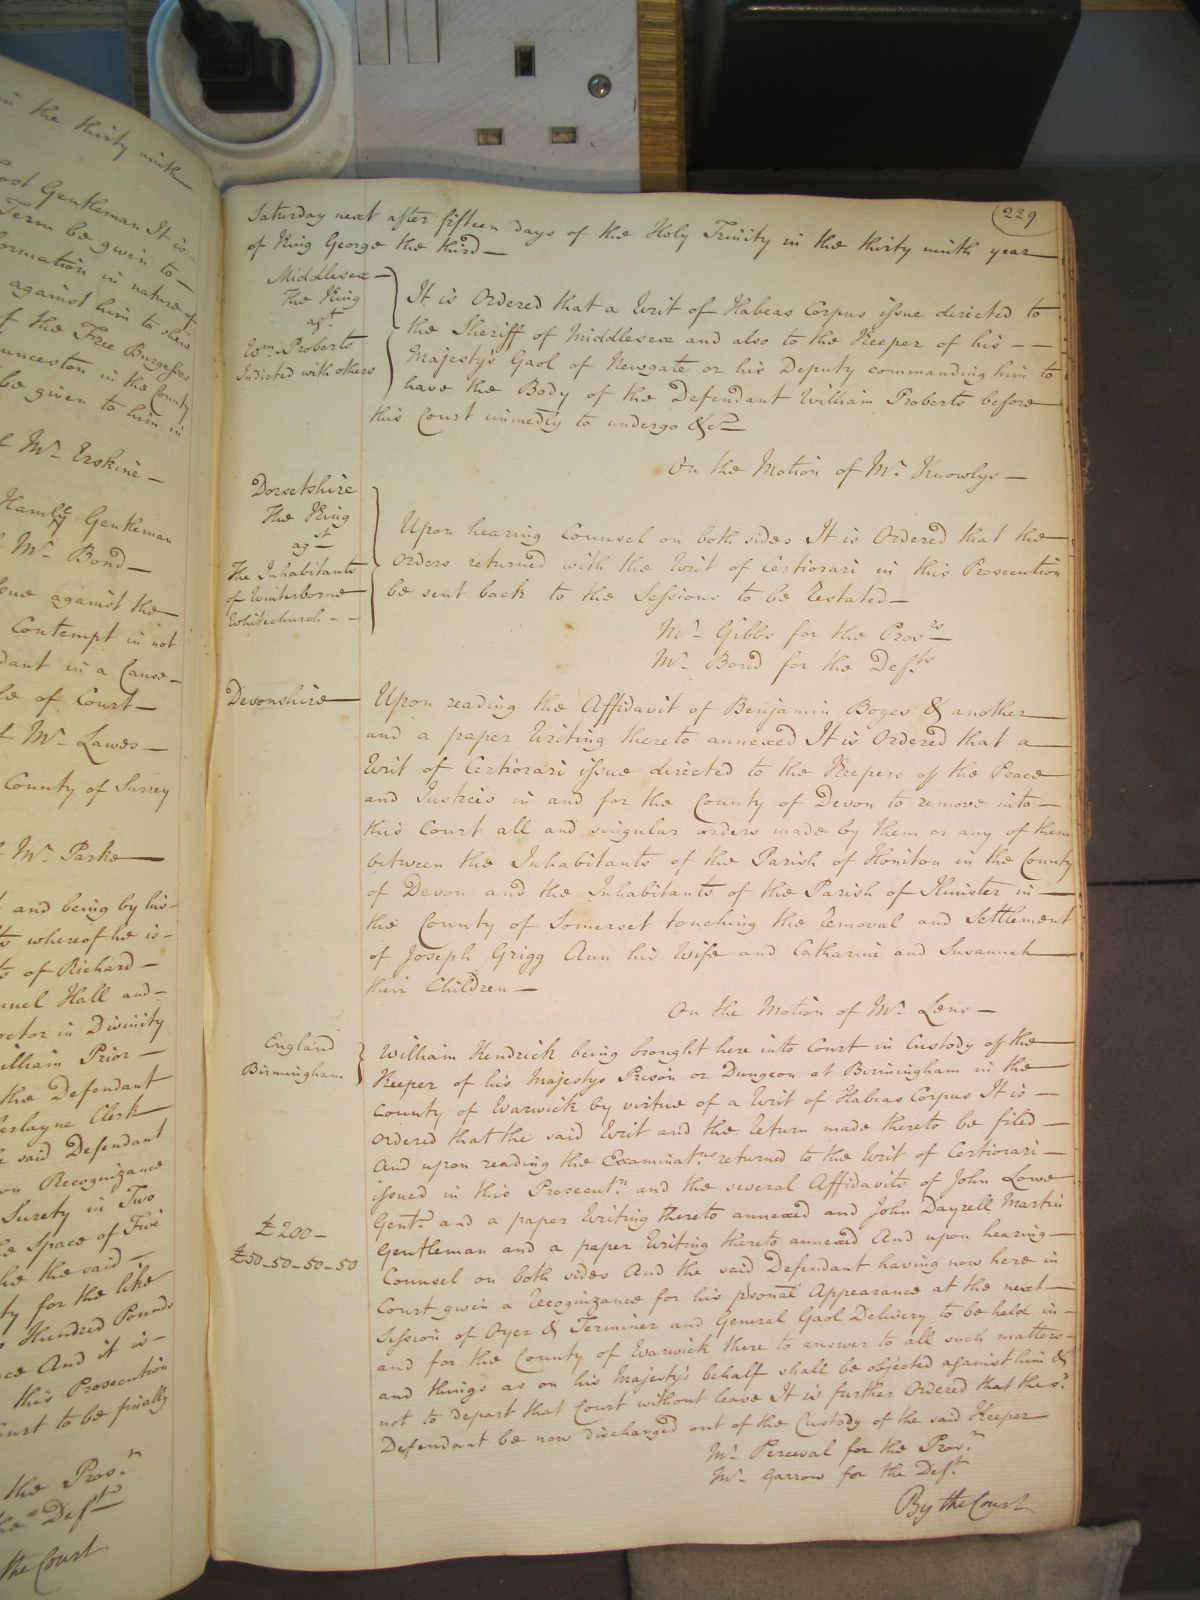 in the thirty ninth
ost Gentleman It is
Term be given to
formation in nature of
against him to shew
f the Free Burgesses
unceston in the County
be given to him in
Mr. Erskine
Hamlt Gentleman
Mr. Bond
sue against the
Contempt in not
dant in a Cause
le of Court
Mr. Lawes
County of Surrey
Mr. Parke
and being by his
ts whereof he is
ts of Richard
uel Hall and
octor in Divinity
illiam Prior
the Defendant
erslayne Clerk
e said Defendant
on Recognizance
Surety in Two
he space of Five
he the said
ty for the like
Hundred Pounds
ce And it is
this Prosecution
ourt to be finally
the Pros.r
he Deft
the Court
229
Saturday next after fifteen days of the Holy Trinity in the thirty ninth year
of King George the third
Middlesex
The King
agt.
Wm. Roberts
Indicted with others
It is Ordered that a Writ of Habeas Corpus issue directed to
the Sheriff of Middlesex and also to the Keeper of his
Majesty's Gaol of Newgate or his Deputy commanding him to
have the Body of the Defendant William Roberts before
this Court immedly to undergo &c
On the Motion of Mr. Knowlys
Dorsetshire
The King
agst
The Inhabitants
of Winterborne
Whitechurch
Upon hearing Counsel on both sides It is Ordered that the
orders returned with the Writ of Certiorari in this Prosecution
be sent back to the Sessions to be restated
Mr. Gibbs for the Prosrs
Mr. Bond for the Defts
Devonshire
Upon reading the Affidavit of Benjamin Boyes & another
and a paper Writing thereto annexed It is Ordered that a
Writ of Certiorari issue directed to the Keepers of the Peace
and Justices in and for the County of Devon to remove into
this Court all and singular orders made by them or any of them
between the Inhabitants of the Parish of Honiton in the County
of Devon and the Inhabitants of the Parish of Ilminster in
the County of Somerset touching the removal and Settlement
of Joseph Grigg Ann his Wife and Catharine and Susannah
their Children
On the Motion of Mr. Lens
England
Birmingham
William Kendrick being brought here into Court in Custody of the
Keeper of his Majestys Prison or Dungeon at Birmingham in the
County of Warwick by virtue of a Writ of Habeas Corpus It is
ordered that the said Writ and the return made thereto be filed
And upon reading the Examinatns. returned to the Writ of Certiorari
issued in this Prosecutn. and the several Affidavits of John Lowe
Gent. and a paper Writing thereto annexed and John Dayrell Martin
Gentleman and a paper Writing thereto annexed And upon hearing
Counsel on both sides And the said Defendant having now here in
Court given a recognizance for his psonal Appearance at the next
Session of Oyer & Terminer and General Gaol Delivery to be held in
and for the County of Warwick there to answer to all such matters
and things as on his Majesty's behalf shall be objected against him &
not to depart that Court without leave It is further Ordered that the sd.
Defendant be now discharged out of the Custody of the said Keeper
£200
£50-50-50-50
Mr. Perceval for the Prosr.
Mr. Garrow for the Deft.
By the Court